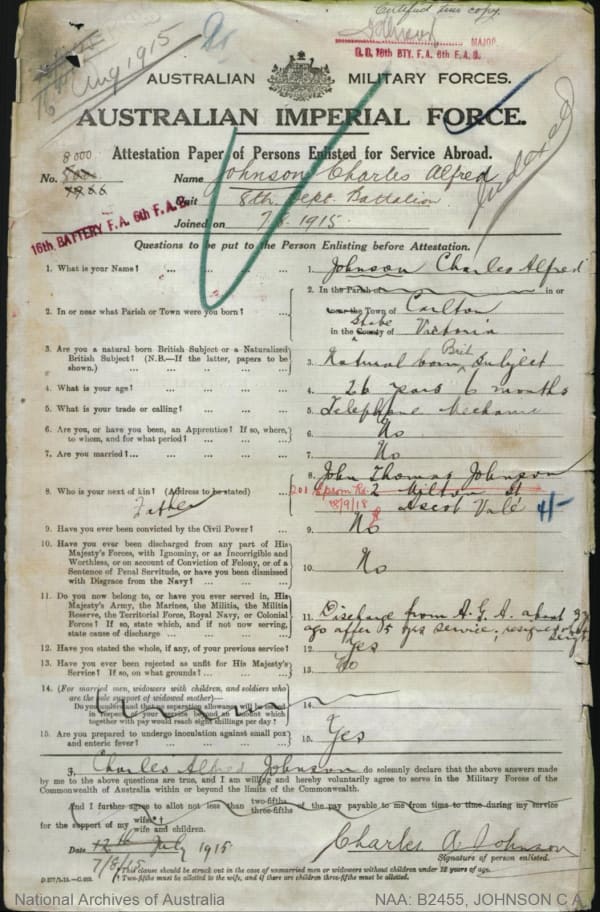 Certified true copy.
Johnson MAJOR
O.C. 16th BTY. F.A. 6th F.A.B.
16 Aug 1915
AUSTRALIAN MILITARY FORCES.
AUSTRALIAN IMPERIAL FORCE.
Attestation Paper of Persons Enlisted for Service Abroad.
8000
No. Name Johnson Charles Alfred
Indexed
Unit 8th Dept. Battalion
Joined on 7/8/1915
16th BATTERY F.A. 6th F.A.B.
Questions to be put to the Person Enlisting before Attestation.
1. What is your Name? ... ... ... 1. Johnson Charles Alfred
2. In or near what Parish or Town were you born? ... 2. In the Parish of in or
near the Town of Carlton
in the County of State Victoria
3. Are you a natural born British Subject or a Naturalized British Subject? (N.B.—If the latter, papers to be shown.) ... ... 3. Natural born Brit Subject
4. What is your age? ... ... ... 4. 26 years 6 months
5. What is your trade or calling? ... ... ... 5. Telephone Mechanic
6. Are you, or have you been, an Apprentice? If so, where, to whom, and for what period? ... ... 6. No
7. Are you married? ... ... ... 7. No
8. Who is your next of kin? (Address to be stated) ... 8. John Thomas Johnson
Father
201 Epsom Rd. 2 Milton St
18/9/18 Ascot Vale 4/-
9. Have you ever been convicted by the Civil Power? ... 9. No
10. Have you ever been discharged from any part of His Majesty's Forces, with Ignominy, or as Incorrigible and Worthless, or on account of Conviction of Felony, or of a Sentence of Penal Servitude, or have you been dismissed with Disgrace from the Navy? ... 10. No
11. Do you now belong to, or have you ever served in, His Majesty's Army, the Marines, the Militia, the Militia Reserve, the Territorial Force, Royal Navy, or Colonial Forces? If so, state which, and if not now serving, state cause of discharge ... 11. Discharge from A.G.A. about 3 ago after 5 yrs service;
12. Have you stated the whole, if any, of your previous service? 12. Yes
13. Have you ever been rejected as unfit for His Majesty's Service? If so, on what grounds? ... ... 13. No
14. (For married men, widowers with children, and soldiers who are the sole support of widowed mother)—
Do you understand that no separation allowance will be issued in respect of your service beyond an amount which together with pay would reach eight shillings per day? 14.
15. Are you prepared to undergo inoculation against small pox and enteric fever? ... ... 15. Yes
I, Charles Alfred Johnson do solemnly declare that the above answers made
by me to the above questions are true, and I am willing and hereby voluntarily agree to serve in the Military Forces of the
Commonwealth of Australia within or beyond the limits of the Commonwealth.
And I further agree to allot not less than two-fifths three-fifths of the pay payable to me from time to time during my service
for the support of my wife*† wife and children.
Date 12th July 1915
7/8/15
Charles A Johnson
Signature of person enlisted.
* This clause should be struck out in the case of unmarried men or widowers without children under 18 years of age.
† Two-fifths must be allotted to the wife, and if there are children three-fifths must be allotted.
National Archives of Australia NAA: B2455, JOHNSON C A